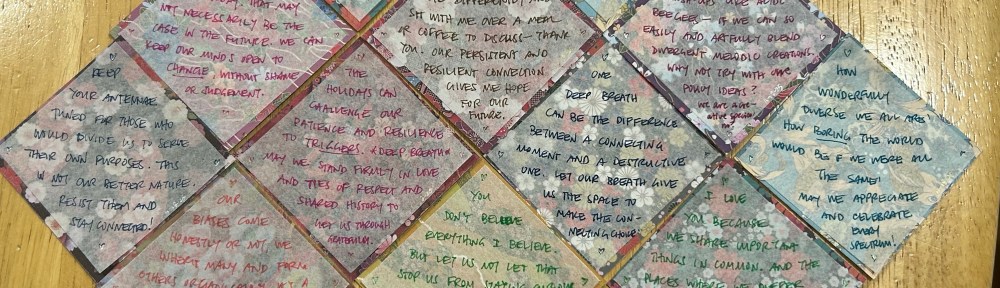 THAT MAY
NOT NECESSARILY BE THE
CASE IN THE FUTURE. WE CAN
KEEP OUR MINDS OPEN TO
CHANGE, WITHOUT SHAME
OR JUDGEMENT.
SIT WITH ME OVER A MEAL
OR COFFEE TO DISCUSS — THANK
YOU. OUR PERSISTENT AND
RESILIENT CONNECTION
GIVES ME HOPE
FOR OUR
FUTURE.
BEEGEES — IF WE CAN SO
EASILY AND ARTFULLY BLEND
DIVERGENT MELODIC CREATIONS,
WHY NOT TRY WITH OUR
POLICY IDEAS?
WE ARE
DEEP
YOUR ANTENNAE
TUNED FOR THOSE WHO
WOULD DIVIDE US TO SERVE
THEIR OWN PURPOSES. THIS
IS NOT OUR BETTER NATURE.
RESIST THEM AND
STAY CONNECTED!
THE
HOLIDAYS CAN
CHALLENGE OUR
PATIENCE AND RESILIENCE
TO TRIGGERS. A DEEP BREATH
MAY WE STAND FIRMLY IN LOVE
AND TIES OF RESPECT AND
SHARED HISTORY TO
GET US THROUGH
GRATEFULLY.
ONE
DEEP BREATH
CAN BE THE DIFFERENCE
BETWEEN A CONNECTING
MOMENT AND A DESTRUCTIVE
ONE. LET OUR BREATH GIVE
US THE SPACE TO
MAKE THE CON-
NECTING CHOICE.
HOW
WONDERFULLY
DIVERSE WE ALL ARE!
HOW BORING THE WORLD
WOULD BE IF WE WERE ALL
THE SAME!
MAY WE APPRECIATE
AND CELEBRATE
EVERY
SPECTRUM!
OUR
BIASES COME
HONESTLY OR NOT. WE
INHERIT MANY AND FORM
OTHERS
YOU
DON'T BELIEVE
EVERYTHING I BELIEVE.
BUT LET US NOT LET THAT
STOP US FROM STAYING
I LOVE
YOU BECAUSE
WE SHARE IMPORTANT
THINGS IN COMMON. AND THE
PLACES WHERE WE